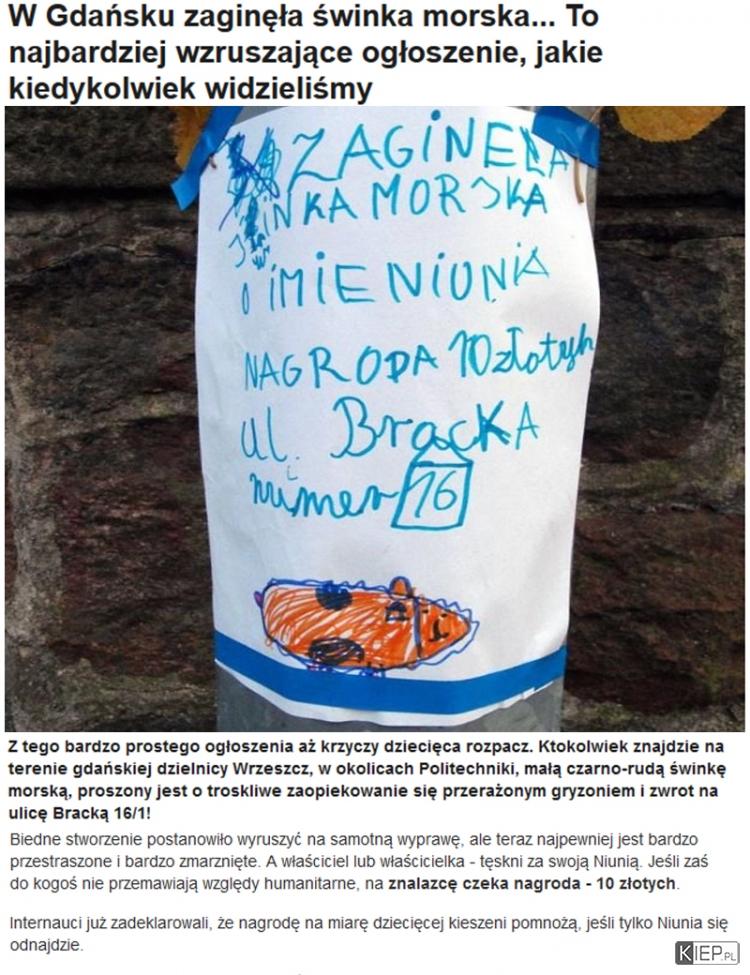 W Gdańsku zaginęła świnka morska... To
najbardziej wzruszające ogłoszenie, jakie
kiedykolwiek widzieliśmy
ZAGINEŁA
ŚINKA MORSKA
O IMIENIUNIA
NAGRODA 10 złotych
ul. BrącKA
numer 16
Z tego bardzo prostego ogłoszenia aż krzyczy dziecięca rozpacz. Ktokolwiek znajdzie na
terenie gdańskiej dzielnicy Wrzeszcz, w okolicach Politechniki, małą czarno-rudą świnkę
morską, proszony jest o troskliwe zaopiekowanie się przerażonym gryzoniem i zwrot na
ulicę Bracką 16/1!
Biedne stworzenie postanowiło wyruszyć na samotną wyprawę, ale teraz najpewniej jest bardzo
przestraszone i bardzo zmarznięte. A właściciel lub właścicielka - tęskni za swoją Niunią. Jeśli zaś
do kogoś nie przemawiają względy humanitarne, na znalazcę czeka nagroda - 10 złotych.
Internauci już zadeklarowali, że nagrodę na miarę dziecięcej kieszeni pomnożą, jeśli tylko Niunia się
odnajdzie.
KIEP.PL